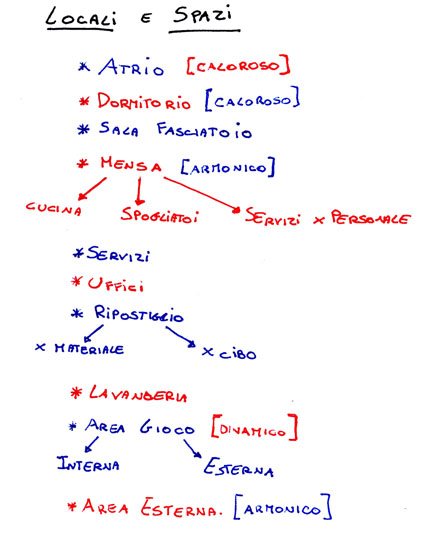 LOCALI E SPAZI
* ATRIO [CALOROSO]
* DORMITORIO [CALOROSO]
* SALA FASCIATOIO
* MENSA [ARMONICO]
CUCINA SPOGLIATOI SERVIZI X PERSONALE
* SERVIZI
* UFFICI
* RIPOSTIGLIO
X MATERIALE X CIBO
* LAVANDERIA
* AREA GIOCO [DINAMICO]
INTERNA ESTERNA
* AREA ESTERNA. [ARMONICO]